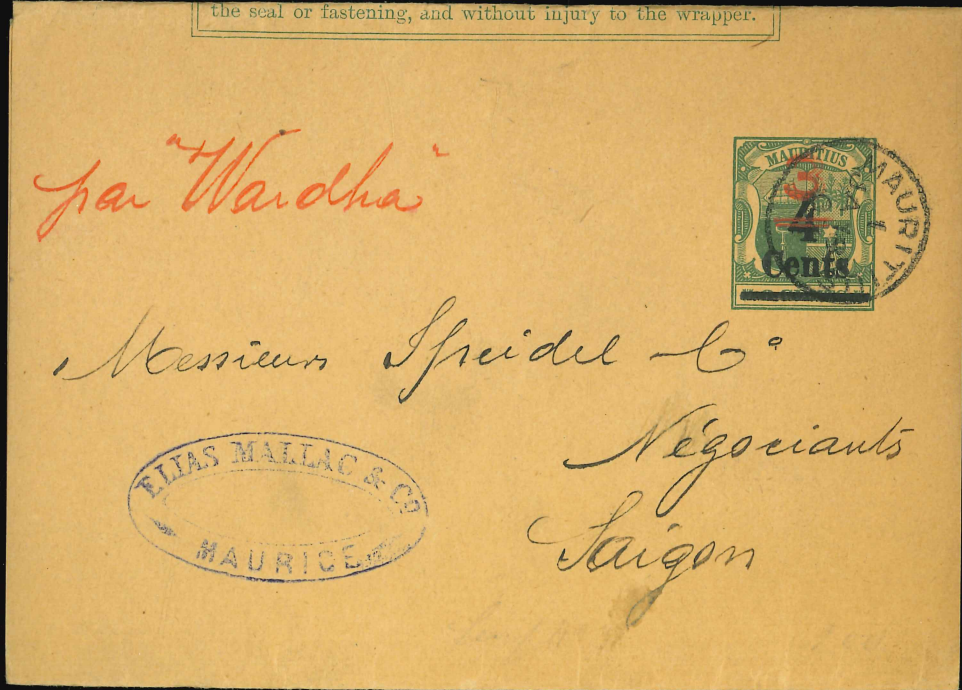 the seal or fastening, and without injury to the wrapper.
par "Wardha"
MAURITIUS
4
Cents
MAURITIUS
Messieurs Speidel & Co
Négociants
Saigon
ELIAS MALLAC & CO
MAURICE